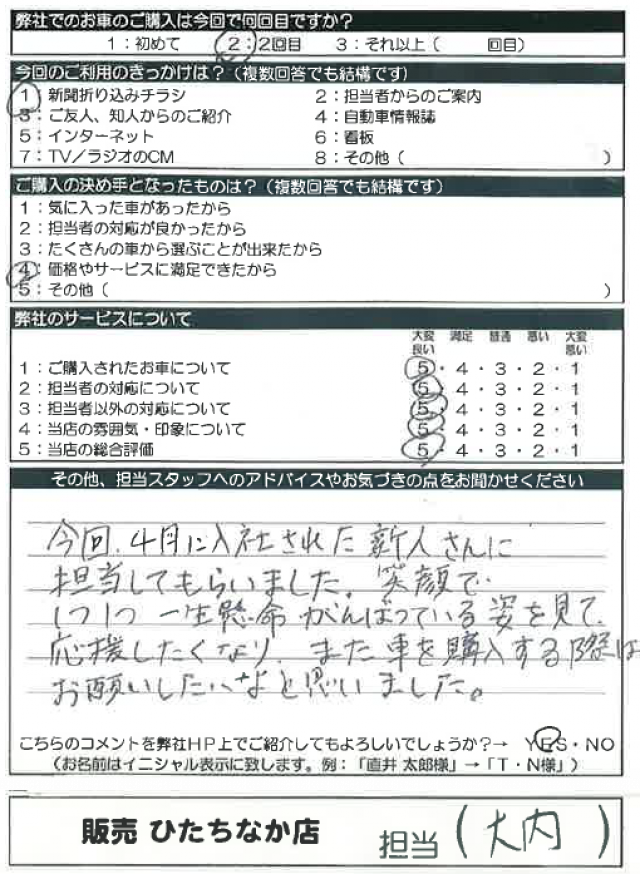 弊社でのお車のご購入は今回で何回目ですか?
1:初めて 2:2回目 3:それ以上( 回目)
今回のご利用のきっかけは?(複数回答でも結構です)
1 新聞折り込みチラシ 2:担当者からのご案内
3:ご友人、知人からのご紹介 4:自動車情報誌
5:インターネット 6:看板
7:TV/ラジオのCM 8:その他( )
ご購入の決め手となったものは?(複数回答でも結構です)
1:気に入った車があったから
2:担当者の対応が良かったから
3:たくさんの車から選ぶことが出来たから
4:価格やサービスに満足できたから
5:その他( )
弊社のサービスについて
大変良い 満足 普通 悪い 大変悪い
1:ご購入されたお車について 5・4・3・2・1
2:担当者の対応について 5・4・3・2・1
3:担当者以外の対応について 5・4・3・2・1
4:当店の雰囲気・印象について 5・4・3・2・1
5:当店の総合評価 5・4・3・2・1
その他、担当スタッフへのアドバイスやお気づきの点をお聞かせください
今回、4月に入社された新人さんに
担当してもらいました。笑顔で
1つ1つ一生懸命がんばっている姿を見て、
応援したくなり、また車を購入する際は
お願いしたいなと思いました。
こちらのコメントを弊社HP上でご紹介してもよろしいでしょうか?→ YES・NO
(お名前はイニシャル表示に致します。例:「直井 太郎様」→「T・N様」)
販売 ひたちなか店 担当(大内)